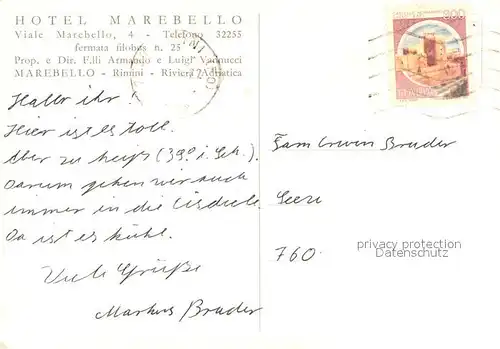 HOTEL MAREBELLO
Viale Marebello, 4 - Telefono 32255
fermata filobus n. 25
Prop. e Dir. F.lli Armando e Luigi Vannucci
MAREBELLO - Rimini - Riviera Adriatica
Hallo ihr!
Hier ist es toll.
Aber zu heiß (39° i. Sch.).
Darum gehen wir auch
immer in die Eisdiele.
Da ist es kühl.
Viele Grüße
Markus Bruder
800
Fam Erwin Bruder
760
privacy protection
Datenschutz